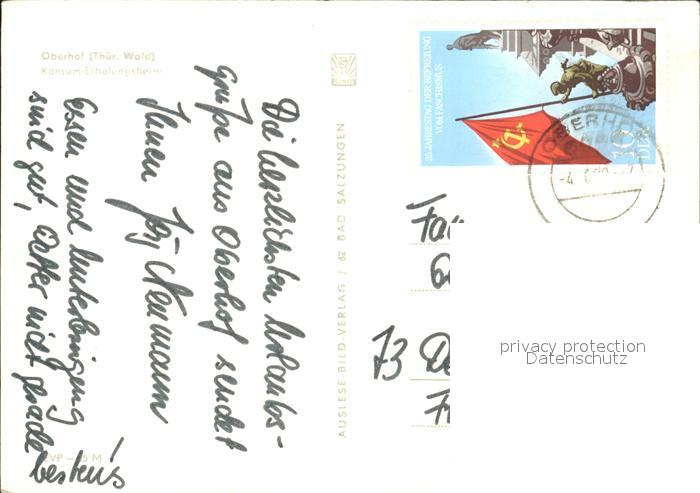 Oberhof (Thür. Wald)
Konsum-Erholungsheim
Die herzlichsten Urlaubs-
grüße aus Oberhof sendet
Ihnen Jörg Neumann
Essen und Unterbringung
sind gut, Wetter nicht gerade
bestens!
EVP – 25 M
AUSLESE-BILD-VERLAG / 62 BAD SALZUNGEN
25. JAHRESTAG DER BEFREIUNG
VOM FASCHISMUS
10
DDR
OBERHOF
-4.
Fa
73 D
privacy protection
Datenschutz